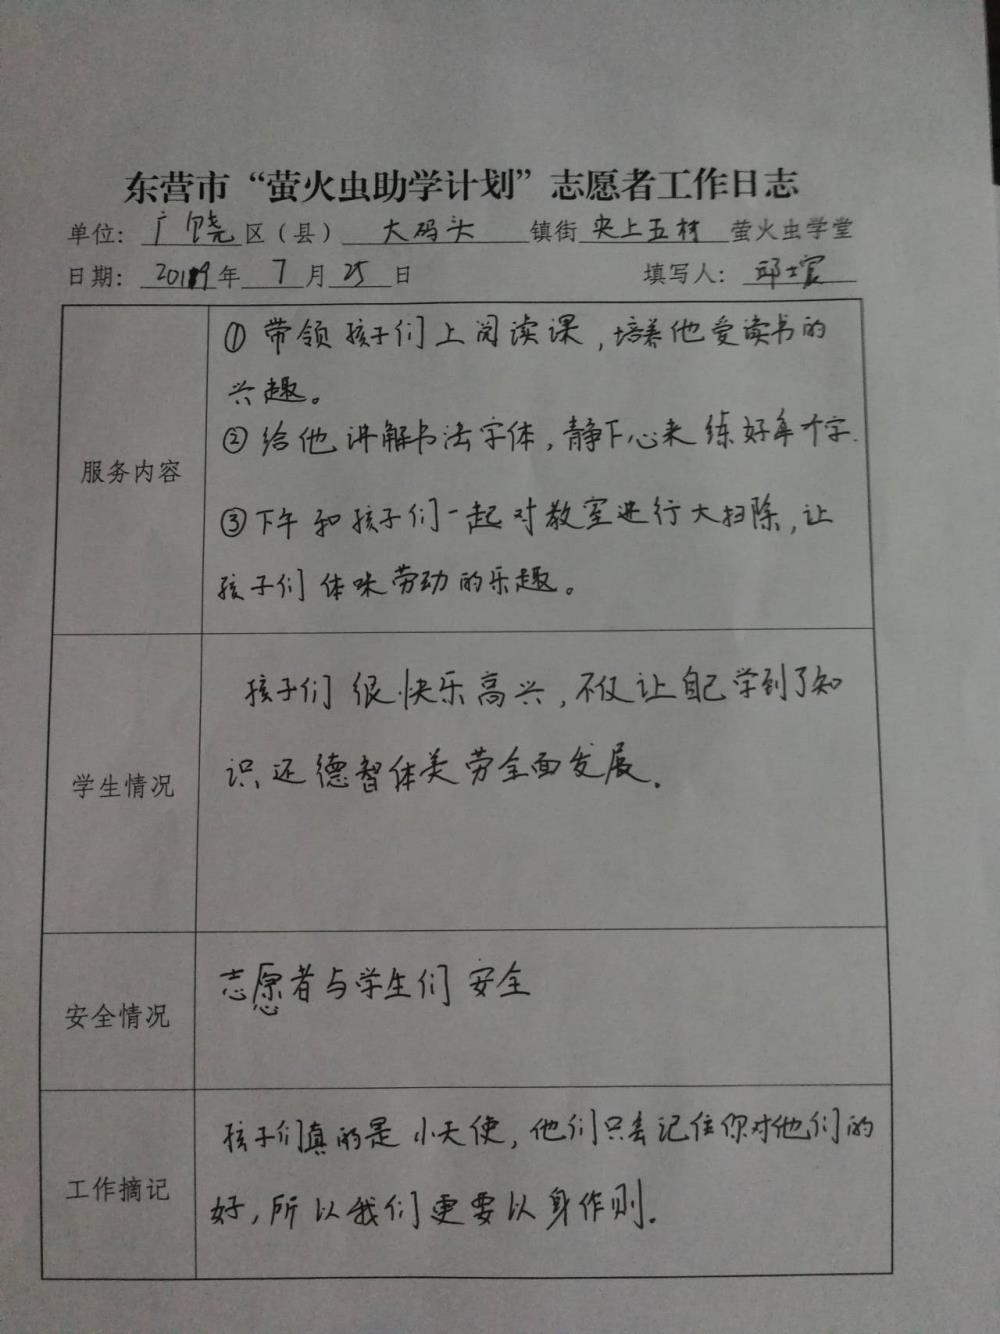 东营市“萤火虫助学计划”志愿者工作日志
单位：广饶区（县）大码头镇街央上五村萤火虫学堂
日期：2019年7月25日 填写人：邱
①带领孩子们上阅读课，培养他爱读书的
兴趣。
服务内容
②给他讲解书法字体，静下心来练好每个字.
③下午和孩子们一起对教室进行大扫除，让
孩子们体味劳动的乐趣。
孩子们很快乐高兴，不仅让自己学到了知
学生情况
识，还德智体美劳全面发展.
安全情况
志愿者与学生们安全
孩子们真的是小天使，他们只会记住你对他们的
工作摘记
好，所以我们更要以身作则.